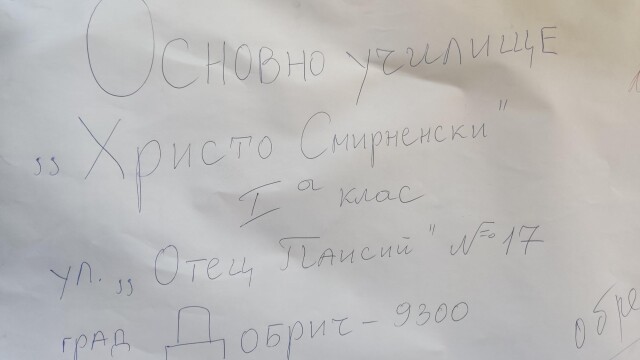 Основно училище
„Христо Смирненски"
I а клас
ул. „Отец Паисий" №17
град Добрич - 9300